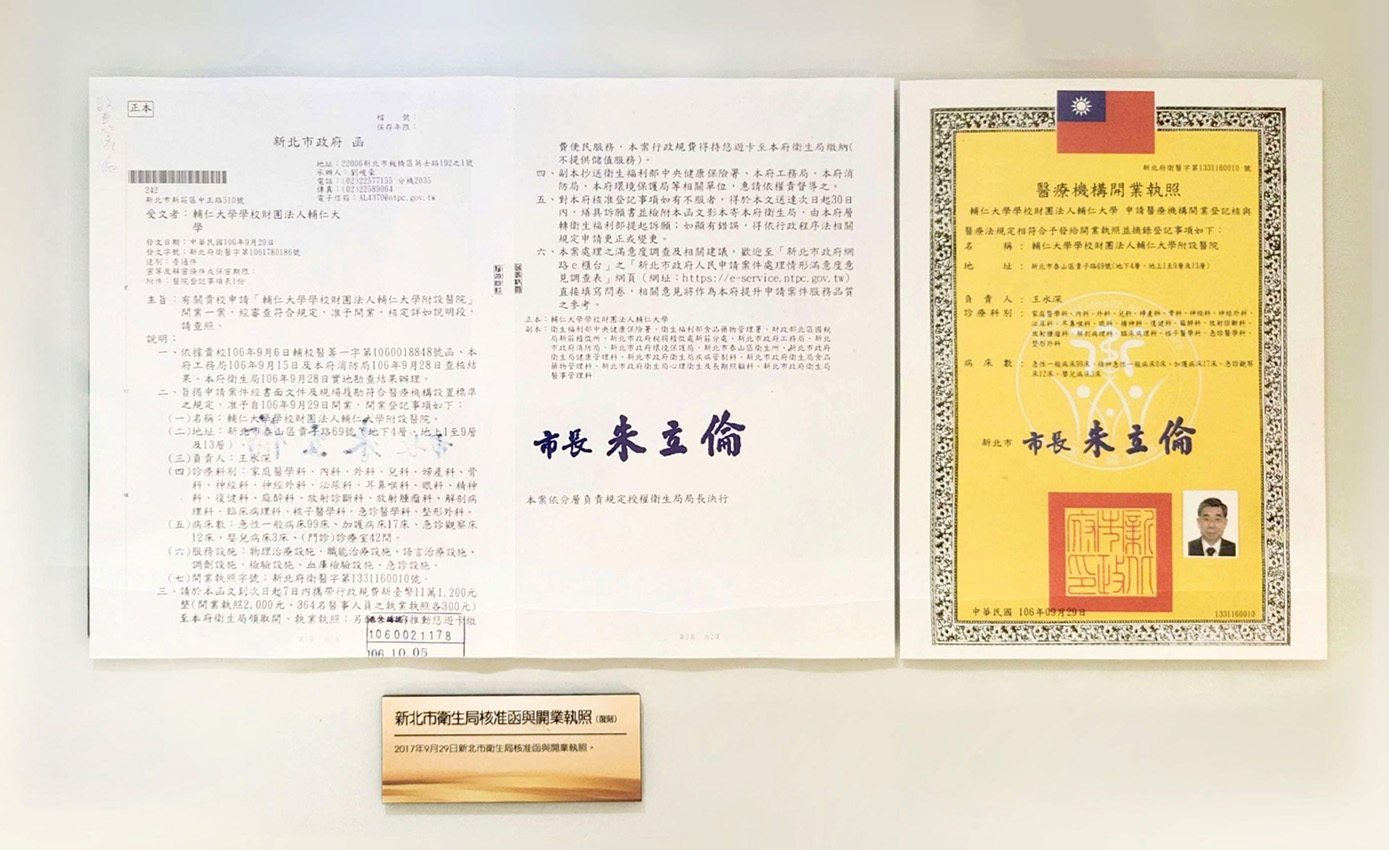 正本
檔　　號：
保存年限：
新北市政府 函
地址：22006新北市板橋區英士路192之1號
承辦人：劉峻豪
電話：(02)22577155 分機2035
傳真：(02)22589064
電子信箱：AL4370@ntpc.gov.tw
242
新北市新莊區中正路510號
受文者：輔仁大學學校財團法人輔仁大
學
發文日期：中華民國106年9月29日
發文字號：新北府衛醫字第1061780186號
速別：普通件
密等及解密條件或保密期限：
附件：醫院登記事項表1份
主旨：有關貴校申請「輔仁大學學校財團法人輔仁大學附設醫院」
開業一案，經審查符合規定，准予開業，核定詳如說明段，
請查照。
說明：
一、依據貴校106年9月6日輔校醫籌一字第1060018848號函、本
府工務局106年9月15日及本府消防局106年9月28日查核結
果、本府衛生局106年9月28日實地勘查結果辦理。
二、旨揭申請案件經書面文件及現場履勘符合醫療機構設置標準
之規定，准予自106年9月29日開業，開業登記事項如下：
(一)名稱：輔仁大學學校財團法人輔仁大學附設醫院。
(二)地址：新北市泰山區貴子路69號（地下4層、地上1至9層
及13層）。
(三)負責人：王水深
(四)診療科別：家庭醫學科、內科、外科、兒科、婦產科、骨
科、神經科、神經外科、泌尿科、耳鼻喉科、眼科、精神
科、復健科、麻醉科、放射診斷科、放射腫瘤科、解剖病
理科、臨床病理科、核子醫學科、急診醫學科、整形外科。
(五)病床數：急性一般病床99床、加護病床17床、急診觀察床
12床、嬰兒病床3床、(門診)診療室42間。
(六)服務設施：物理治療設施、職能治療設施、語言治療設施、
調劑設施、檢驗設施、血庫檢驗設施、急診設施。
(七)開業執照字號：新北府衛醫字第1331160010號。
三、請於本函文到次日起7日內攜帶行政規費新臺幣11萬1,200元
整(開業執照2,000元、364名醫事人員之執業執照各300元)
至本府衛生局領取開、執業執照；另
推動悠遊卡繳
1060021178
106.10.05
費便民服務，本案行政規費得持悠遊卡至本府衛生局繳納(
不提供儲值服務)。
四、副本抄送衛生福利部中央健康保險署、本府工務局、本府消
防局、本府環境保護局等相關單位，惠請依權責督導之。
五、對本府核准登記事項如有不服者，得於本文送達次日起30日
內，繕具訴願書並檢附本函文影本寄本府衛生局，由本府層
轉衛生福利部提起訴願；如顯有錯誤，得依行政程序法相關
規定申請更正或變更。
六、本案處理之滿意度調查及相關建議，歡迎至「新北市政府網
路e櫃台」之「新北市政府人民申請案件處理情形滿意度意
見調查表」網頁（網址：https://e-service.ntpc.gov.tw）
直接填寫問卷，相關意見將作為本府提升申請案件服務品質
之參考。
正本：輔仁大學學校財團法人輔仁大學
副本：衛生福利部中央健康保險署、衛生福利部食品藥物管理署、財政部北區國稅
局新莊稽徵所、新北市政府稅捐稽徵處新莊分處、新北市政府工務局、新北
市政府消防局、新北市政府環境保護局、新北市泰山區衛生所、新北市政府
衛生局健康管理科、新北市政府衛生局疾病管制科、新北市政府衛生局食品
藥物管理科、新北市政府衛生局心理衛生及長期照顧科、新北市政府衛生局
醫事管理科
市長 朱立倫
本案依分層負責規定授權衛生局局長決行
第2頁　共2頁
新北府衛醫字第1331160010 號
醫療機構開業執照
輔仁大學學校財團法人輔仁大學 申請醫療機構開業登記核與
醫療法規定相符合予發給開業執照並摘錄登記事項如下：
名　　稱：輔仁大學學校財團法人輔仁大學附設醫院
地　　址：新北市泰山區貴子路69號(地下4層、地上1至9層及13層)
負 責 人：王水深
診療科別：家庭醫學科、內科、外科、兒科、婦產科、骨科、神經科、神經外科、
泌尿科、耳鼻喉科、眼科、精神科、復健科、麻醉科、放射診斷科、
放射腫瘤科、解剖病理科、臨床病理科、核子醫學科、急診醫學科、
整形外科
病 床 數：急性一般病床99床、精神急性一般病床0床、加護病床17床、急診觀察
床12床、嬰兒病床3床
新北市 市長 朱立倫
新北市政府印
中華民國 106年09月29日
1331160010
新北市衛生局核准函與開業執照（復刻）
2017年9月29日新北市衛生局核准函與開業執照。